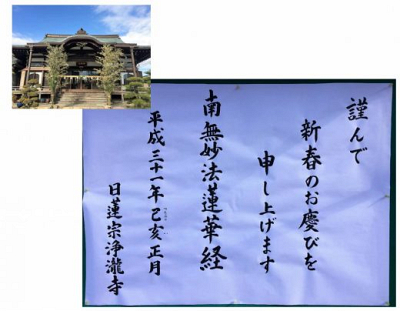 謹んで
新春のお慶びを
申し上げます
南無妙法蓮華経
平成三十一年己亥正月
日蓮宗浄瀧寺